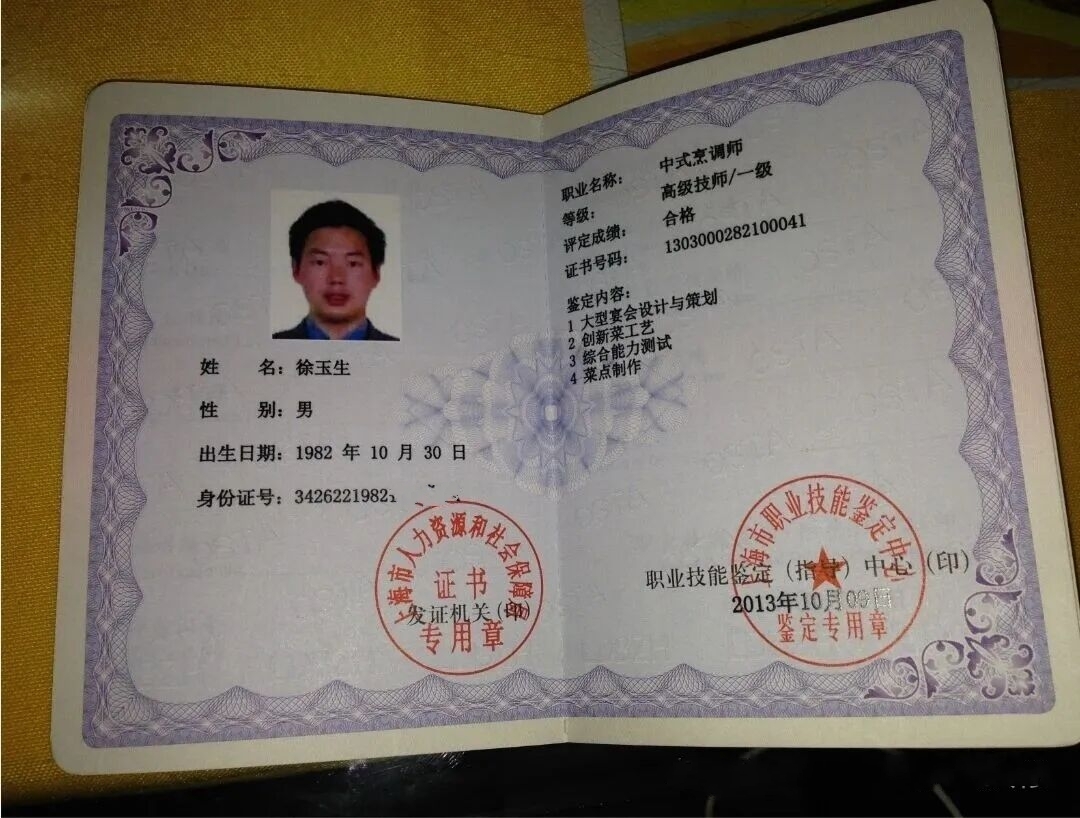 姓 名：徐玉生
性 别：男
出生日期：1982 年 10 月 30 日
身份证号：3426221982
上海市人力资源和社会保障局
证书
专用章
发证机关(印)
职业名称： 中式烹调师
等级： 高级技师/一级
评定成绩： 合格
证书号码： 1303000282100041
鉴定内容：
1 大型宴会设计与策划
2 创新菜工艺
3 综合能力测试
4 菜点制作
上海市职业技能鉴定中心
职业技能鉴定（指导）中心（印）
2013年10月09日
鉴定专用章